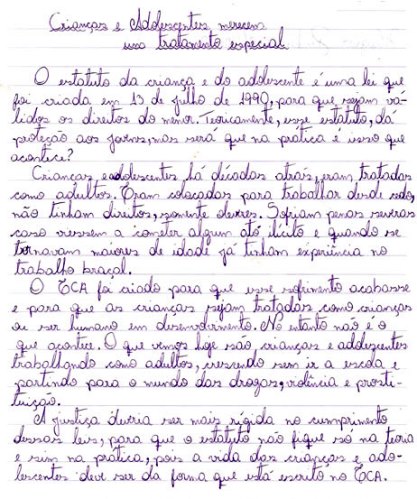 Crianças e Adolescentes merecem
um tratamento especial
O estatuto da criança e do adolescente é uma lei que
foi criada em 13 de julho de 1990, para que sejam vá-
lidos os direitos do menor. Teoricamente, esse estatuto, dá
proteção aos jovens, mas será que na prática é isso que
acontece?
Crianças, e adolescentes, há décadas atrás, eram tratados
como adultos. Eram colocadas para trabalhar desde cedo,
não tinham direitos, somente deveres. Sofriam penas severas
caso viessem a cometer algum ato ilícito e quando se
tornavam maiores de idade já tinham experiência no
trabalho braçal.
O ECA foi criado para que esse sofrimento acabasse
e para que as crianças sejam tratadas como crianças
ou ser humano em desenvolvimento. No entanto não é o
que acontece. O que vemos hoje são, crianças e adolescentes
trabalhando como adultos, crescendo sem ir a escola e
partindo para o mundo das drogas, violência e prosti-
tuição.
A justiça deveria ser mais rígida no cumprimento
dessas leis, para que o estatuto não fique só na teoria
e sim na prática, pois a vida das crianças e ado-
lescentes deve ser da forma que está escrito no ECA.